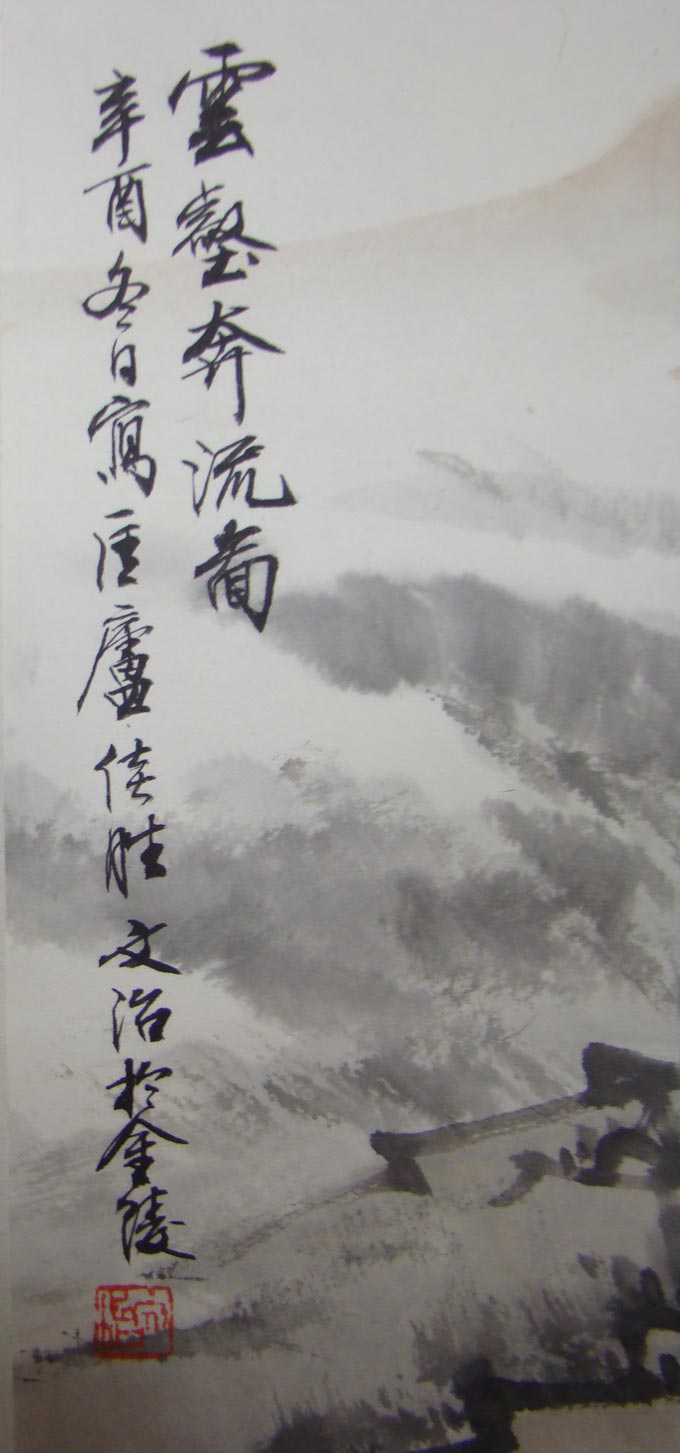 雲壑奔流啚
辛酉冬日寫匡廬佳胜文治於金陵